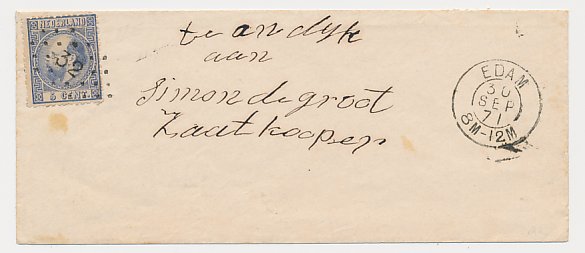 NEDERLAND
32
5 CENT.
te andyk
aan
Simon de groot
Zaatkooper
EDAM
30
SEP
71
8M-12M